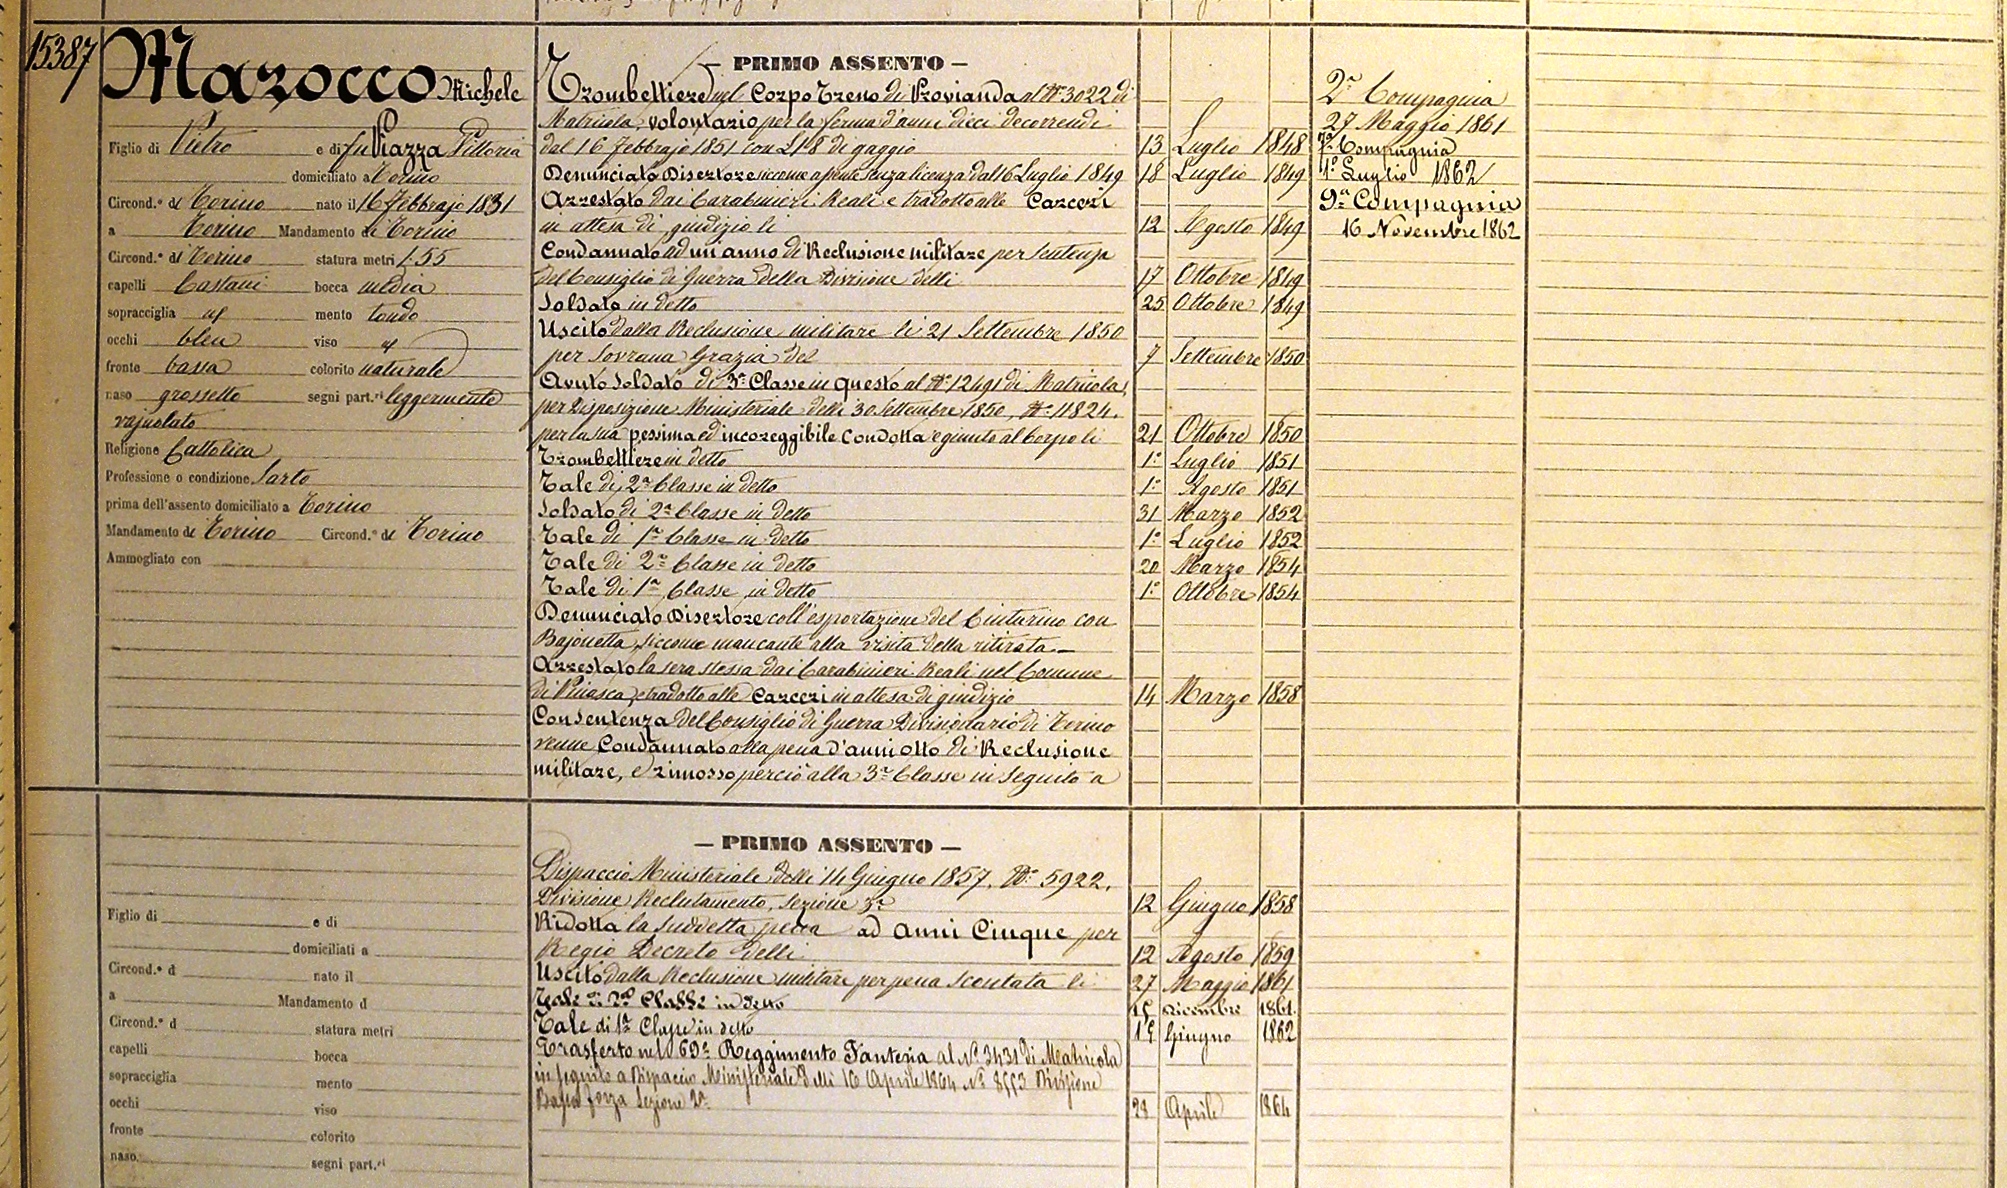 15387
Marocco Michele
Figlio di Pietro e di fu Piazza Vittoria
domiciliato a Torino
Circond.º di Torino nato il 16 febbrajo 1831
a Torino Mandamento di Torino
Circond.º di Torino statura metri 1.55
capelli Castani bocca media
sopracciglia id mento tondo
occhi bleu viso id
fronte bassa colorito naturale
naso grossetto segni part.ri leggermente
vajuolato
Religione Cattolica
Professione o condizione Sarto
prima dell'assento domiciliato a Torino
Mandamento di Torino Circond.º di Torino
Ammogliato con
— PRIMO ASSENTO —
Trombettiere nel Corpo Treno di Provianda al Nº 3022 di
Matricola, volontario per la ferma d'anni dieci decorrendi
dal 16 febbrajo 1851 con L 18 di gaggio 13 Luglio 1848
Denunciato Disertore siccome assente senza licenza dal 16 Luglio 1849 18 Luglio 1849
Arrestato dai Carabinieri Reali e tradotto alle Carceri
in attesa di giudizio li 12 Agosto 1849
Condannato ad un anno di Reclusione militare per sentenza
del Consiglio di Guerra della Divisione delli 17 Ottobre 1849
Soldato in detto 25 Ottobre 1849
Uscito dalla Reclusione militare li 21 Settembre 1850
per Sovrana Grazia del 7 Settembre 1850
Avuto Soldato di 3ª Classe in questo al Nº 12491 di Matricola,
per Disposizione Ministeriale delli 30 Settembre 1850, Nº 11824.
per la sua pessima ed incoreggibile condotta e giunto al Corpo li 21 Ottobre 1850
Trombettiere in detto 1º Luglio 1851
Tale di 2ª Classe in detto 1º Agosto 1851
Soldato di 2ª Classe in detto 31 Marzo 1852
Tale di 1ª Classe in detto 1º Luglio 1852
Tale di 2ª Classe in detto 20 Marzo 1854
Tale di 1ª Classe in detto 1º Ottobre 1854
Denunciato Disertore coll'esportazione del Cinturino con
Bajonetta, siccome mancante alla visita della ritirata —
Arrestato la sera stessa dai Carabinieri Reali nel Comune
di Pinasca, e tradotto alle Carceri in attesa di giudizio 14 Marzo 1858
Con sentenza del Consiglio di Guerra Divisionario di Torino
venne Condannato alla pena d'anni otto di Reclusione
militare, e rimosso perciò alla 3ª Classe in seguito a
2ª Compagnia
27 Maggio 1861
7ª Compagnia
1º Luglio 1862
9ª Compagnia
16 Novembre 1862
Figlio di e di
domiciliati a
Circond.º d nato il
a Mandamento d
Circond.º d statura metri
capelli bocca
sopracciglia mento
occhi viso
fronte colorito
naso segni part.ri
— PRIMO ASSENTO —
Dispaccio Ministeriale delli 14 Giugno 1857. Nº 5922.
Divisione Reclutamento, Sezione 3ª 12 Giugno 1858
Ridotta la suddetta pena ad anni Cinque per
Regio Decreto delli 12 Agosto 1859
Uscito dalla Reclusione militare per pena scontata li 27 Maggio 1861
Tale di 2ª Classe in detto 15 Dicembre 1861.
Tale di 1ª Classe in detto 15 Giugno 1862
Trasferto nel 69º Reggimento Fanteria al Nº 3431 di Matricola
in seguito a Dispaccio Ministeriale delli 16 Aprile 1864 Nº 8553 Divisione
Bassa forza Sezione 2ª 28 Aprile 1864